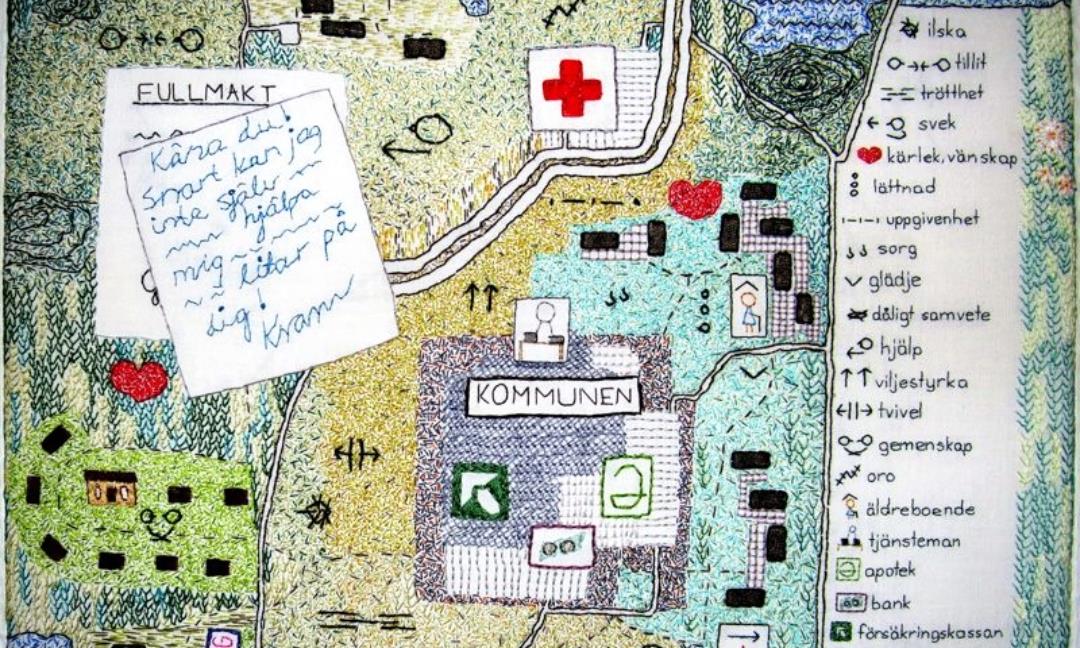 FULLMAKT
Kära du!
Smart kan jag
inte själv
hjälpa
mig litar på
dig!
Kram
KOMMUNEN
ilska
tillit
trötthet
svek
kärlek, vänskap
lättnad
uppgivenhet
sorg
glädje
dåligt samvete
hjälp
viljestyrka
tvivel
gemenskap
oro
äldreboende
tjänsteman
apotek
bank
försäkringskassan